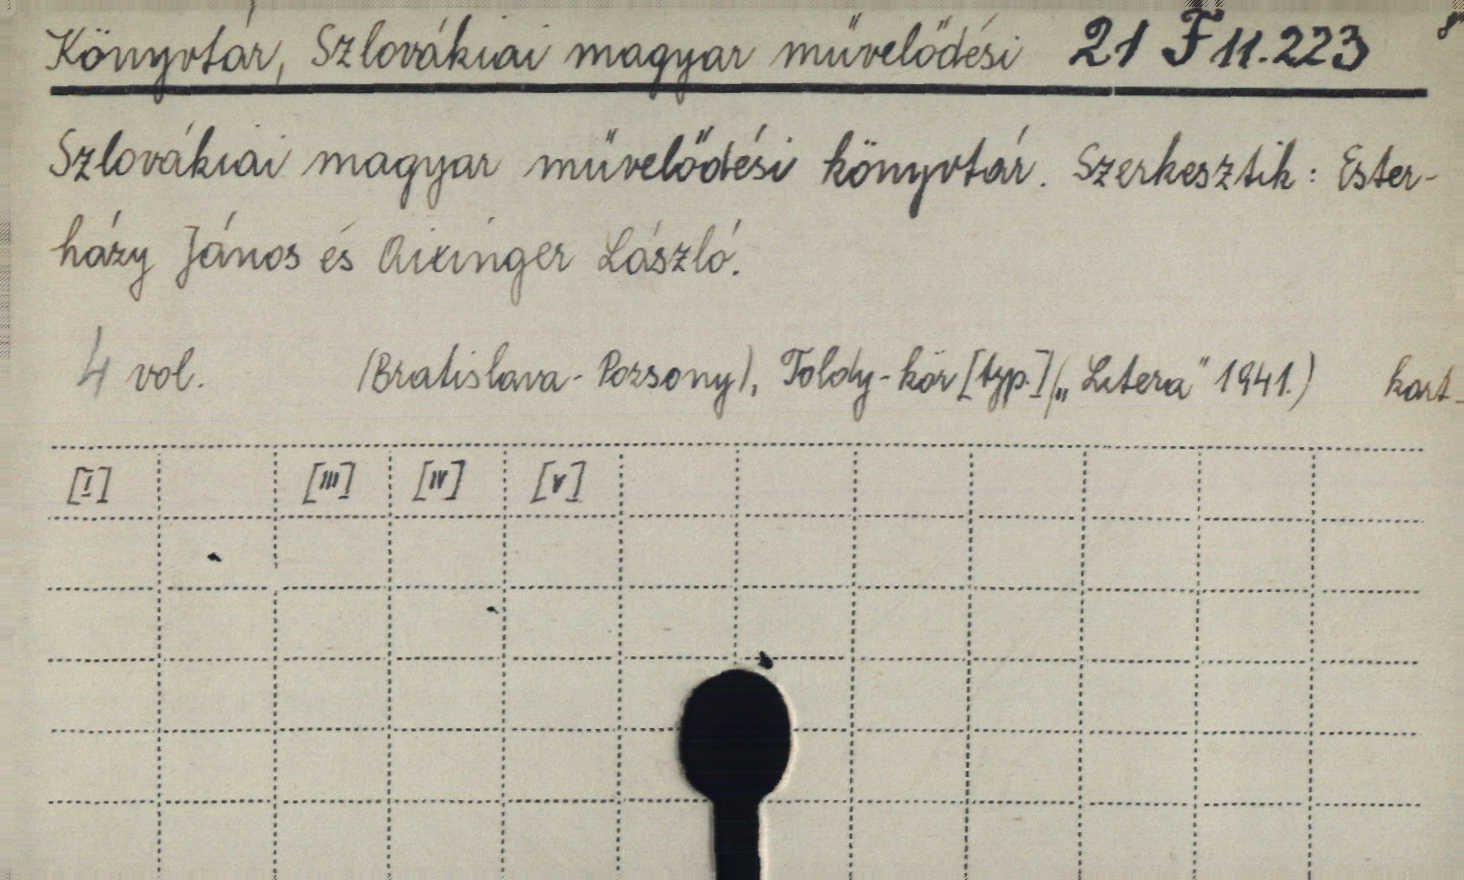 Könyvtár, Szlovákiai magyar művelődési 21 F 11.223 8°
Szlovákiai magyar művelődési könyvtár. Szerkesztik: Ester-
házy János és Aixinger László.
4 vol. (Bratislava-Pozsony), Toldy-kör [typ.] („Litera" 1941.) kart.
[I] [III] [IV] [V]